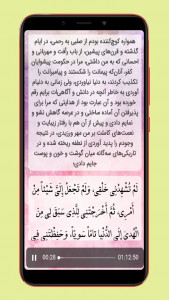 همواره کوچ‌کننده بودم از صلبی به رحمی، در ایام
گذشته و قرن‌های پیشین، از باب رأفت و مهربانی و
احسانی که به من داشتی، مرا در حکومت پیشوایان
کفر، آنان‌که پیمانت را شکستند و پیامبرانت را
تکذیب کردند، به دنیا نیاوردی، ولی زمانی به دنیام
آوردی به خاطر آنچه در دانش و آگاهی‌ات برایم رقم
خورده بود و آن عبارت بود از هدایتی که مرا برای
پذیرفتن آن آماده ساختی و در عرصه گاهش نشو و
نمایم دادی و پیش از آن هم با رفتار زیبایت و
نعمت‌های کاملت بر من مهر ورزیدی، در نتیجه
وجودم را پدید آوردی از نطفه ریخته شده و در
تاریکی‌های سه‌گانه میان گوشت و خون و پوست
جایم دادی؛
لَمْ تُشْهِدْنِی خَلْقِی، وَلَمْ تَجْعَلْ إِلَیَّ شَیْئاً مِنْ
أَمْرِی، ثُمَّ أَخْرَجْتَنِی لِلَّذِی سَبَقَ لِی مِنَ
الْهُدَیٰ إِلَی الدُّنْیا تَامّاً سَوِیّاً، وَحَفِظْتَنِی فِی
00:28
01:12:50